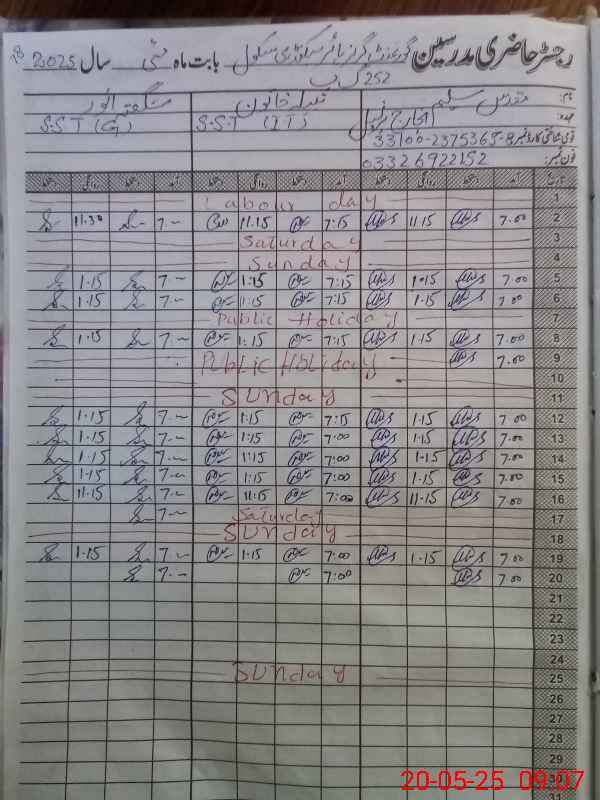 رجسٹر حاضری مدرسین گورنمنٹ گرلز ہائر سیکنڈری سکول بابت ماہ مئی سال 2025
252 گ ب
نام: مقدس سلیم نبیلہ خاتون شگفتہ انور
عہدہ: انچارج پرنسپل S.S.T (IT) S.S.T (G)
قومی شناختی کارڈ نمبر 33100-2375365-8
فون نمبر: 03326922152
تاریخ آمد دستخط روانگی دستخط آمد دستخط روانگی دستخط آمد دستخط روانگی دستخط
1 Labour day
2 7.00 11.15 7:15 11.15 7.— 11.30
3 Saturday
4 Sunday
5 7.00 1.15 7:15 1:15 7.— 1.15
6 7.00 1.15 7:15 1:15 7.— 1.15
7 Public Holiday
8 7.00 1.15 7:15 1:15 7.— 1.15
9 7.00 Public Holiday
10
11 Sunday
12 7.00 1.15 7:15 1:15 7.— 1.15
13 7.00 1.15 7:00 1:15 7.— 1.15
14 7.00 1.15 7:00 1:15 7.— 1.15
15 7.00 1.15 7:00 1:15 7.— 1.15
16 7.00 11.15 7:00 11:15 7.— 11.15
17 Saturday 7.—
18 Sunday
19 7.00 1.15 7:00 1:15 7.— 1.15
20 7.00 7:00 7.—
21
22
23
24
25 Sunday
26
27
28
29
30
31
20-05-25 09:07